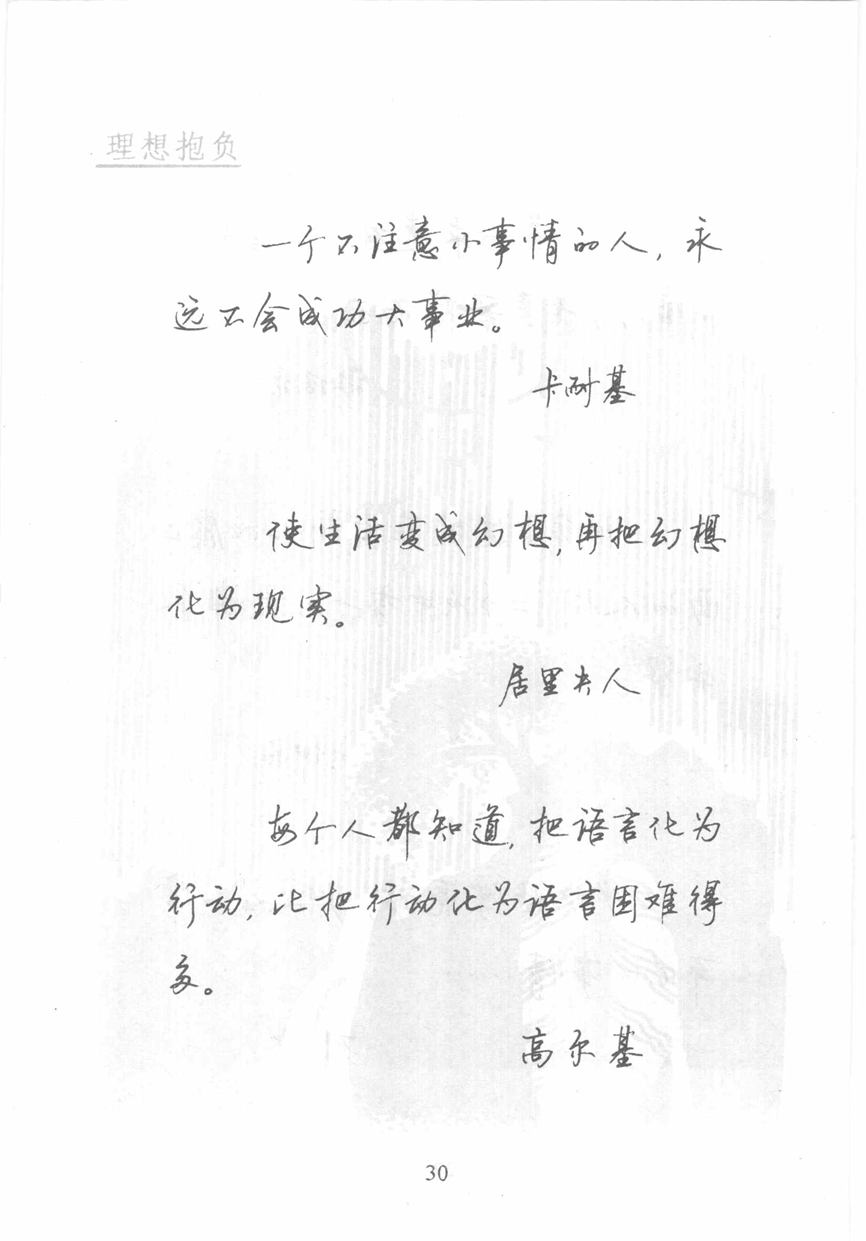 理想抱负
一个不注意小事情的人，永
远不会成功大事业。
卡耐基
使生活变成幻想，再把幻想
化为现实。
居里夫人
每个人都知道，把语言化为
行动，比把行动化为语言困难得
多。
高尔基
30